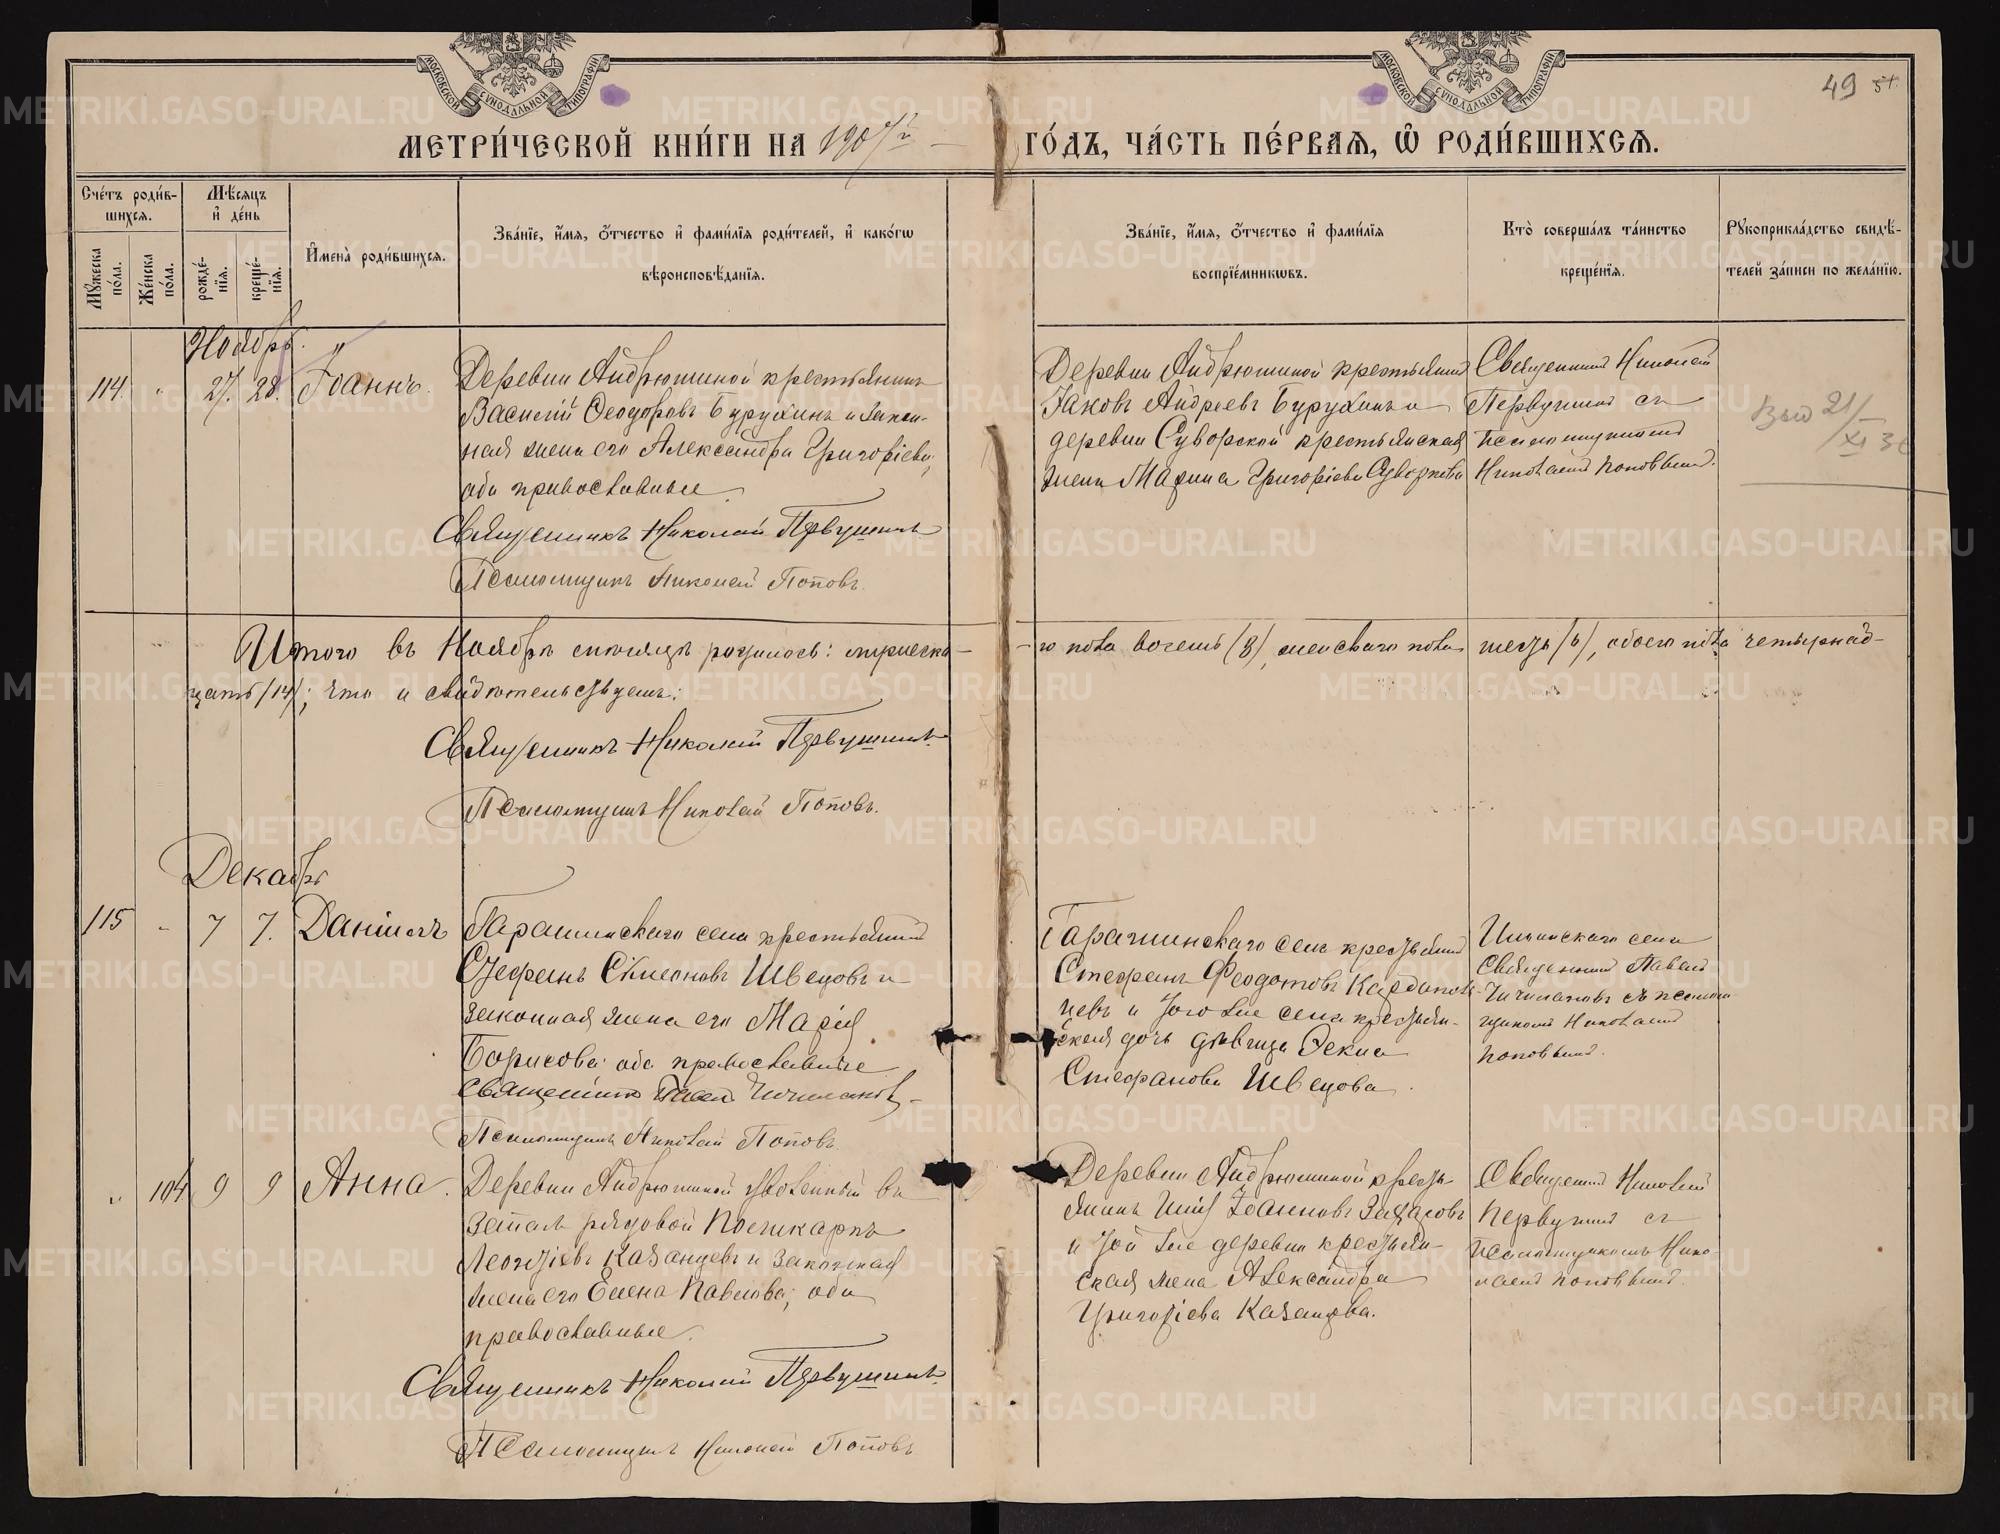 МОСКОВСКОЙ СѴНОДАЛЬНОЙ ТИПОГРАФІИ
МОСКОВСКОЙ СѴНОДАЛЬНОЙ ТИПОГРАФІИ
49
МЕТРИ́ЧЕСКОЙ КНИ́ГИ НА 1907й
ГО́ДЪ, ЧА́СТЬ ПЕ́РВАѦ, Ѽ РОДИ́ВШИХСѦ.
Сче́тъ роди́в-
шихсѧ.
Мꙋжеска по́ла.
Же́нска по́ла.
Мѣ́сѧцъ
и҆ де́нь
рожде́нїѧ.
креще́нїѧ.
И҆мена̀ роди́вшихсѧ.
Зва́нїе, и҆́мѧ, ѻ҆́тчество и҆ фами́лїѧ роди́телей, и҆ како́гѡ
вѣроисповѣ́данїѧ.
Зва́нїе, и҆́мѧ, ѻ҆́тчество и҆ фами́лїѧ
воспрїе́мникѡвъ.
Кто̀ соверша́лъ та́инство
креще́нїѧ.
Рꙋкоприкла́дство свидѣ́-
телей за́писи по жела́нїю.
Ноябрь.
114. " 27. 28. Іоаннъ.
Деревни Андрюшиной крестьянинъ
Василій Ѳеодоровъ Бурухинъ и закон-
ная жена его Александра Григоріева,
оба православные.
Священникъ Николай Первушинъ
Псаломщикъ Николай Поповъ.
Деревни Андрюшиной крестьянинъ
Іаковъ Андреевъ Бурухинъ и
деревни Суворской крестьянская
жена Марина Григоріева Суворкова
Священникъ Николай
Первушинъ съ
псаломщикомъ
Николаемъ Поповымъ.
21/XI
Итого въ Ноябрѣ мѣсяцѣ родилось: мужеска-
го пола восемь (8), женскаго пола шесть (6), обоего пола четырнад-
цать (14); что и свидѣтельствуемъ:
Священникъ Николай Первушинъ
Псаломщикъ Николай Поповъ.
Декабрь
115 " 7 7. Даніилъ
Гарашинскаго села крестьянинъ
Стефанъ Симеоновъ Швецовъ и
законная жена его Марія
Борисова оба православные
Священникъ Павелъ
Псаломщикъ Николай Поповъ
Гарашинскаго села крестьянинъ
Стефанъ Ѳеодотовъ
и того же села крестьян-
ская дочь дѣвица Ѳекла
Стефанова Швецова.
села
Священникъ Павелъ
съ псалом-
щикомъ Николаемъ
Поповымъ.
" 104 9 9 Анна.
Деревни Андрюшиной уволенный въ
запасъ рядовой Поликарпъ
Леонтіевъ Казанцевъ и законная
жена его Елена Павлова, оба
православные.
Священникъ Николай Первушинъ
Псаломщикъ Николай Поповъ
Деревни Андрюшиной кресть-
янинъ Іоанновъ
и той же деревни крестьян-
ская жена Александра
Григоріева Казанцева.
Священникъ Николай
Первушинъ съ
псаломщикомъ Нико-
лаемъ Поповымъ.
METRIKI.GASO-URAL.RU